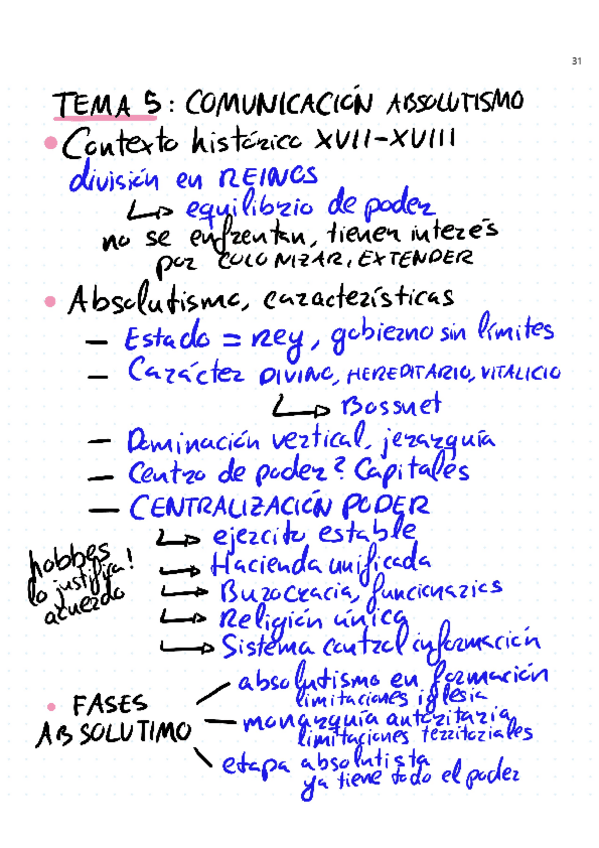 31
TEMA 5: COMUNICACIÓN ABSOLUTISMO
Contexto histórico XVII-XVIII
división en REINOS
↳ equilibrio de poder
no se enfrentan, tienen interés
por COLONIZAR, EXTENDER
Absolutismo, características
— Estado = rey, gobierno sin límites
— Carácter DIVINO, HEREDITARIO, VITALICIO
↳ Bossuet
— Dominación vertical, jerarquía
— Centro de poder? Capitales
— CENTRALIZACIÓN PODER
↳ ejercito estable
→ Hacienda unificada
→ Burocracia, funcionarios
→ Religión única
→ Sistema control información
hobbes
lo justifica!
acuerdo
FASES
ABSOLUTIMO
absolutismo en formación
limitaciones iglesia
monarquía autoritaria
limitaciones territoriales
etapa absolutista
ya tiene todo el poder